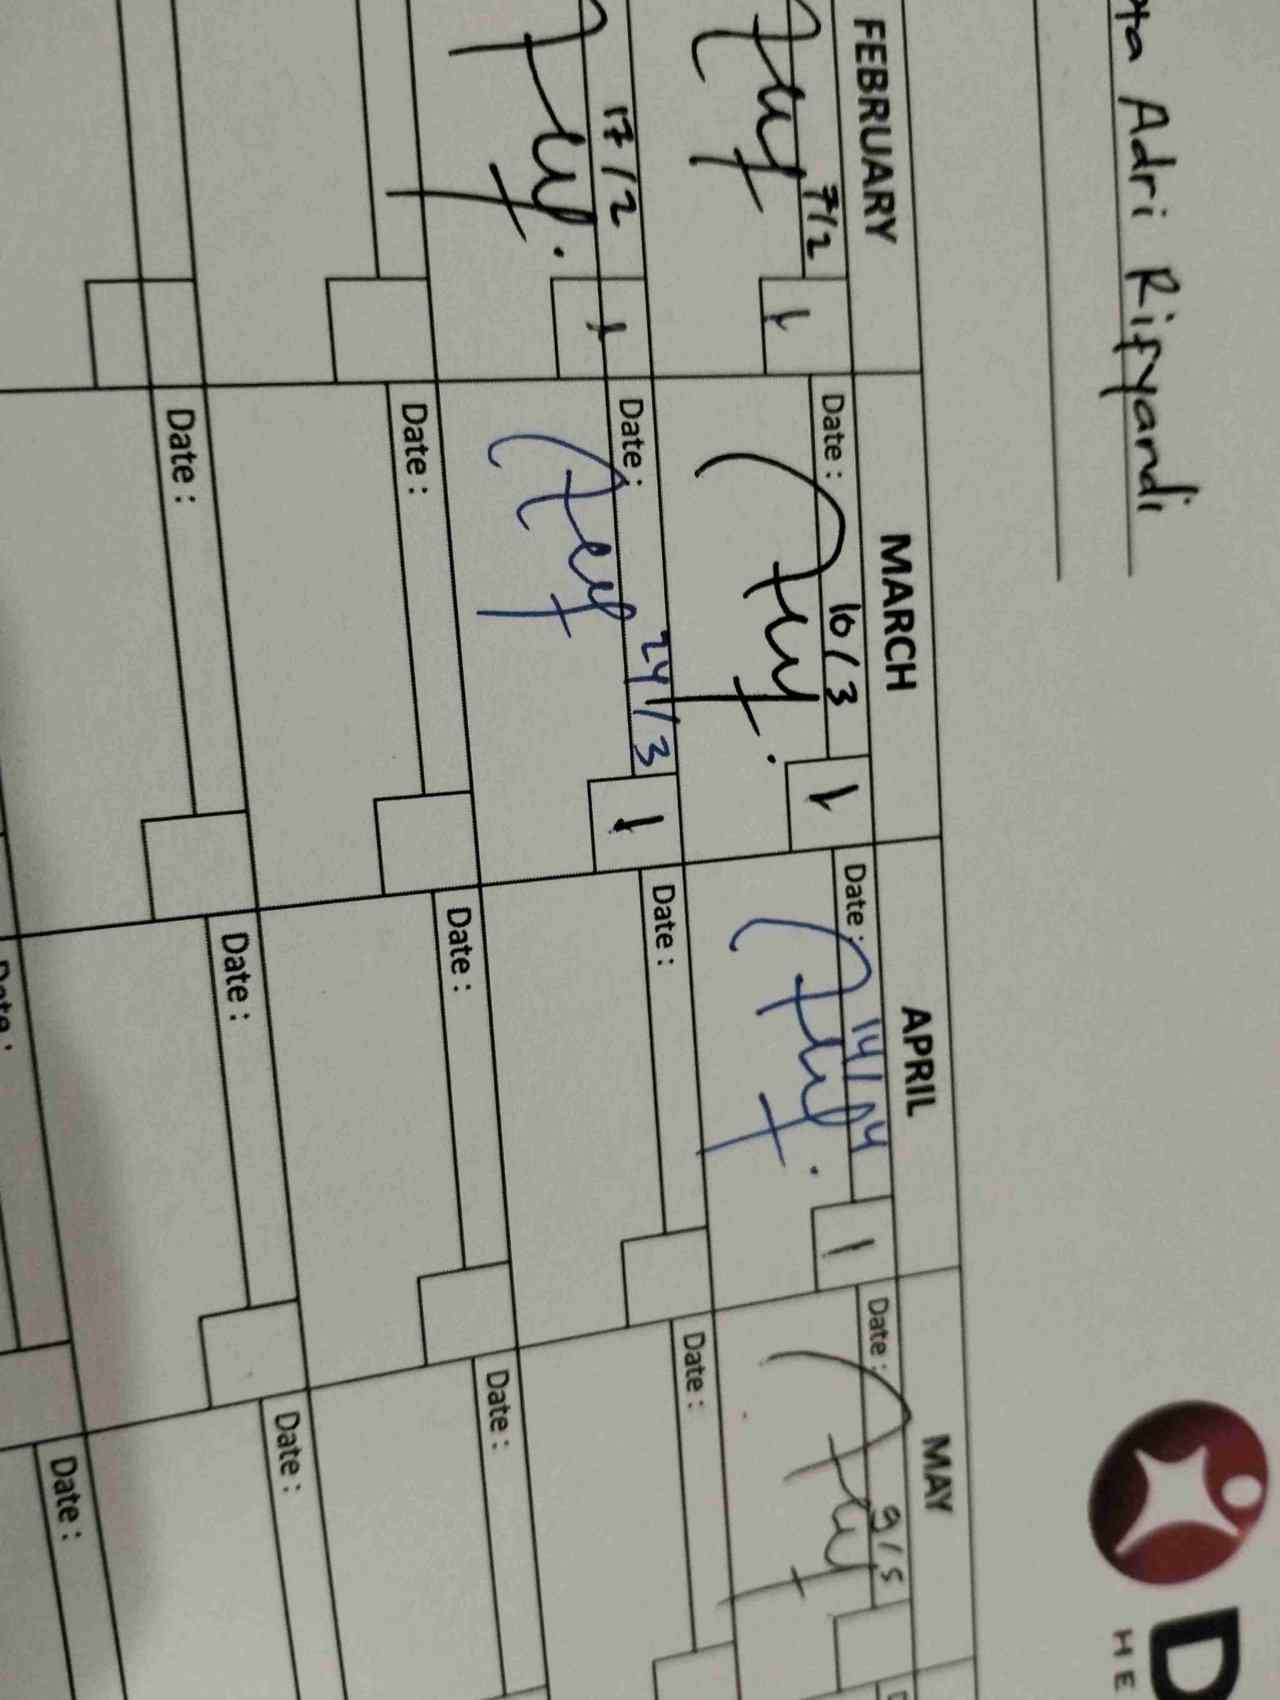 Adri Rifyandi
D
HE
FEBRUARY MARCH APRIL MAY
7/2 Date : 10/3 Date : 14/04 Date : 9/5
1 1 1
17/2 Date : 24/3 Date : Date :
1 1
Date : Date : Date :
Date : Date : Date :
Date : Date :